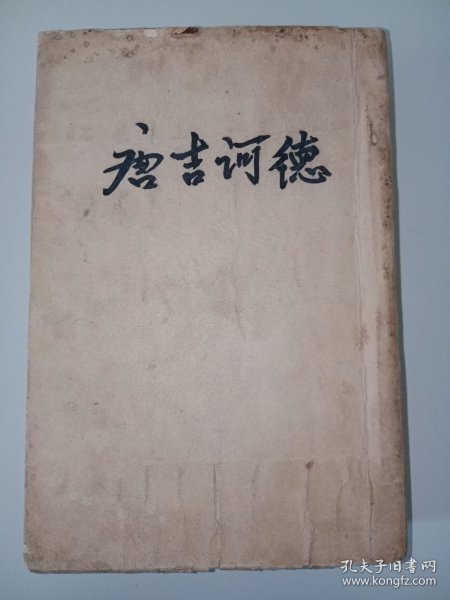 唐吉诃德
孔夫子旧书网
www.kongfz.com